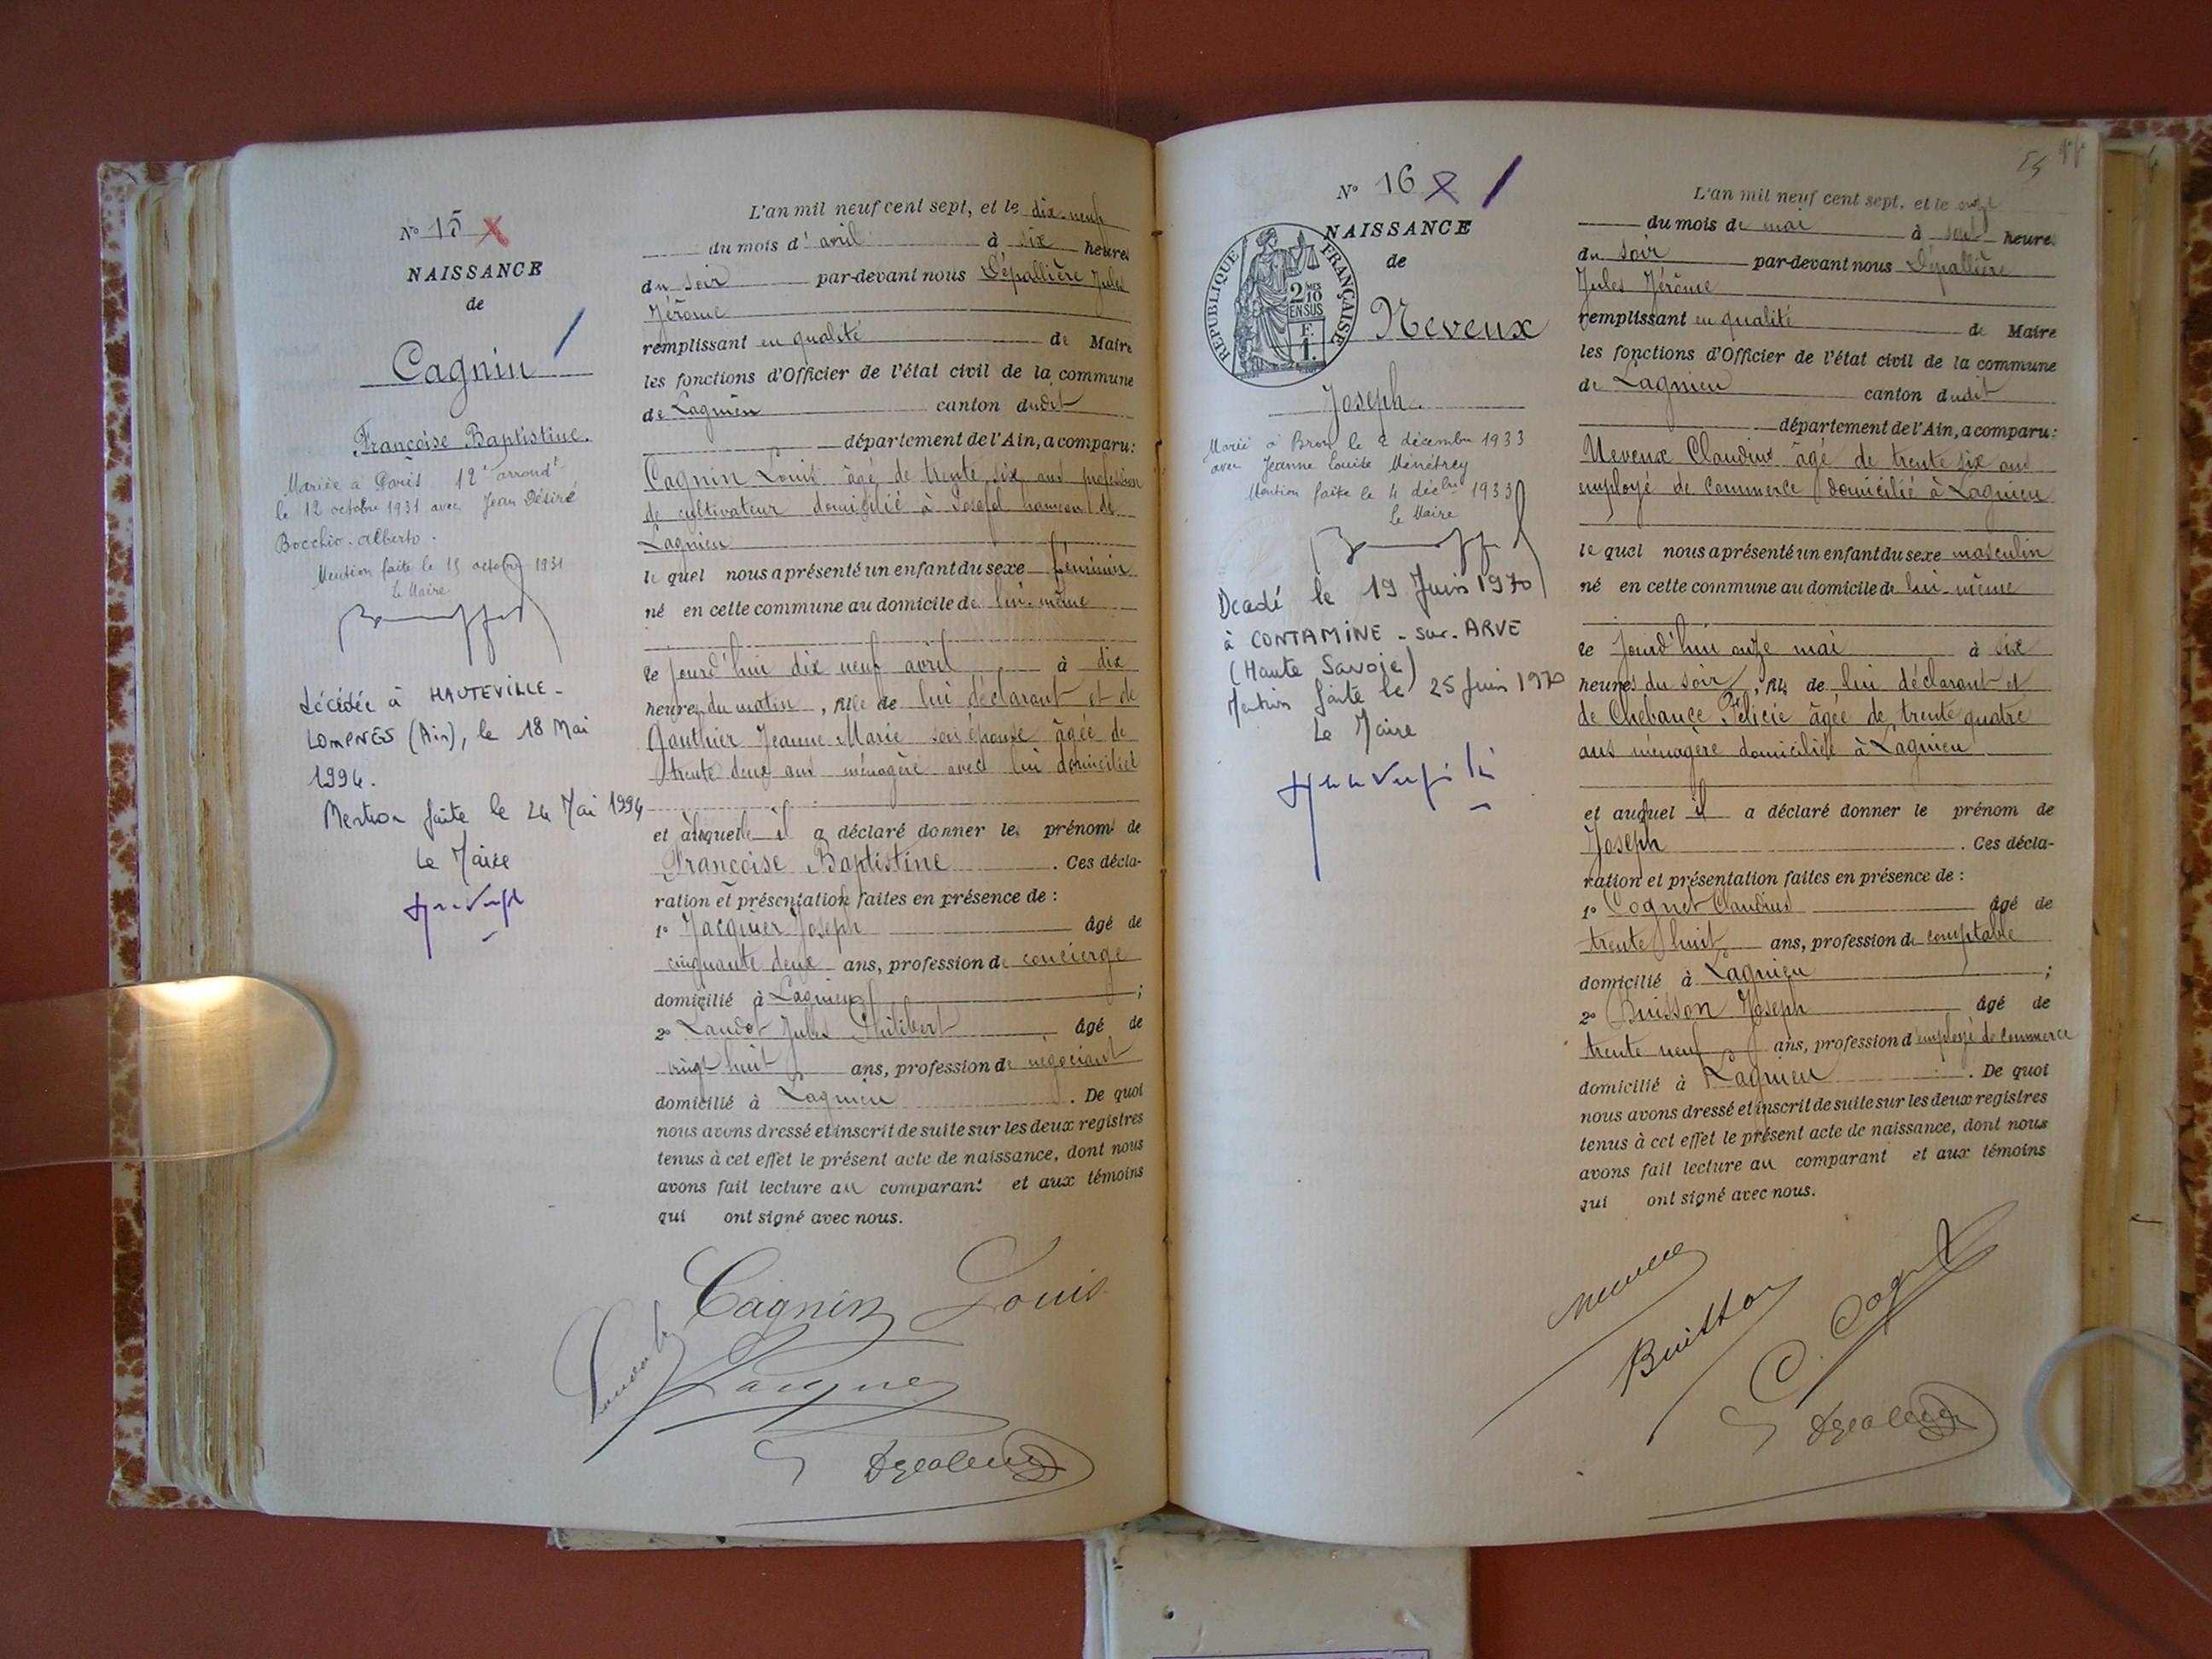 N° 15 X
NAISSANCE
de
Cagnin
Françoise Baptistine.
Mariée à Paris 12e arrondt
le 12 octobre 1931 avec Jean Désiré
Bocchio-Alberto.
Mention faite le 15 octobre 1931
Le Maire
Décédée à HAUTEVILLE-
LOMPNES (Ain), le 18 Mai
1994.
Mention faite le 24 Mai 1994
Le Maire
L'an mil neuf cent sept, et le dix-neuf
du mois d'avril à six heures
du soir par-devant nous Dépallière Jules
Jérôme
remplissant en qualité de Maire
les fonctions d'Officier de l'état civil de la commune
de Lagnieu canton dudit
département de l'Ain, a comparu:
Cagnin Louis âgé de trente six ans profession
de cultivateur domicilié à Posafol hameau de
Lagnieu
le quel nous a présenté un enfant du sexe féminin
né en cette commune au domicile de lui-même
le jourd'hui dix neuf avril à dix
heures du matin, fille de lui déclarant et de
Gauthier Jeanne Marie son épouse âgée de
trente deux ans ménagère avec lui domiciliée
et à laquelle il a déclaré donner les prénoms de
Françoise Baptistine. Ces décla-
ration et présentation faites en présence de :
1° Jacquier Joseph âgé de
cinquante deux ans, profession de concierge
domicilié à Lagnieu ;
2° Laudot Jules Philibert âgé de
vingt huit ans, profession de négociant
domicilié à Lagnieu. De quoi
nous avons dressé et inscrit de suite sur les deux registres
tenus à cet effet le présent acte de naissance, dont nous
avons fait lecture au comparant et aux témoins
qui ont signé avec nous.
Cagnin Louis
N° 16
NAISSANCE
de
RÉPUBLIQUE FRANÇAISE
2 MES
10
EN SUS
F.
1.
Neveux
Joseph.
Marié à Bron le 2 décembre 1933
avec Jeanne Louise Ménétrey
Mention faite le 4 décbre 1933
Le Maire
Décédé le 19 Juin 1970
à CONTAMINE-sur-ARVE
(Haute Savoie)
Mention faite le 25 Juin 1970
Le Maire
L'an mil neuf cent sept, et le onze
du mois de mai à heures
du soir par-devant nous Dépallière
Jules Jérôme
remplissant en qualité de Maire
les fonctions d'Officier de l'état civil de la commune
de Lagnieu canton dudit
département de l'Ain, a comparu:
Neveux Claudius âgé de trente six ans
employé de commerce domicilié à Lagnieu
le quel nous a présenté un enfant du sexe masculin
né en cette commune au domicile de lui-même
le Jourd'hui onze mai à six
heures du soir, fils de lui déclarant et
de Chebance Félicie âgée de trente quatre
ans ménagère domiciliée à Lagnieu
et auquel il a déclaré donner le prénom de
Joseph. Ces décla-
ration et présentation faites en présence de :
1° Cognet Claudius âgé de
trente huit ans, profession de comptable
domicilié à Lagnieu ;
2° Buisson Joseph âgé de
trente neuf ans, profession d'employé de commerce
domicilié à Lagnieu. De quoi
nous avons dressé et inscrit de suite sur les deux registres
tenus à cet effet le présent acte de naissance, dont nous
avons fait lecture au comparant et aux témoins
qui ont signé avec nous.
Neveux
Buisson
C. Cognet